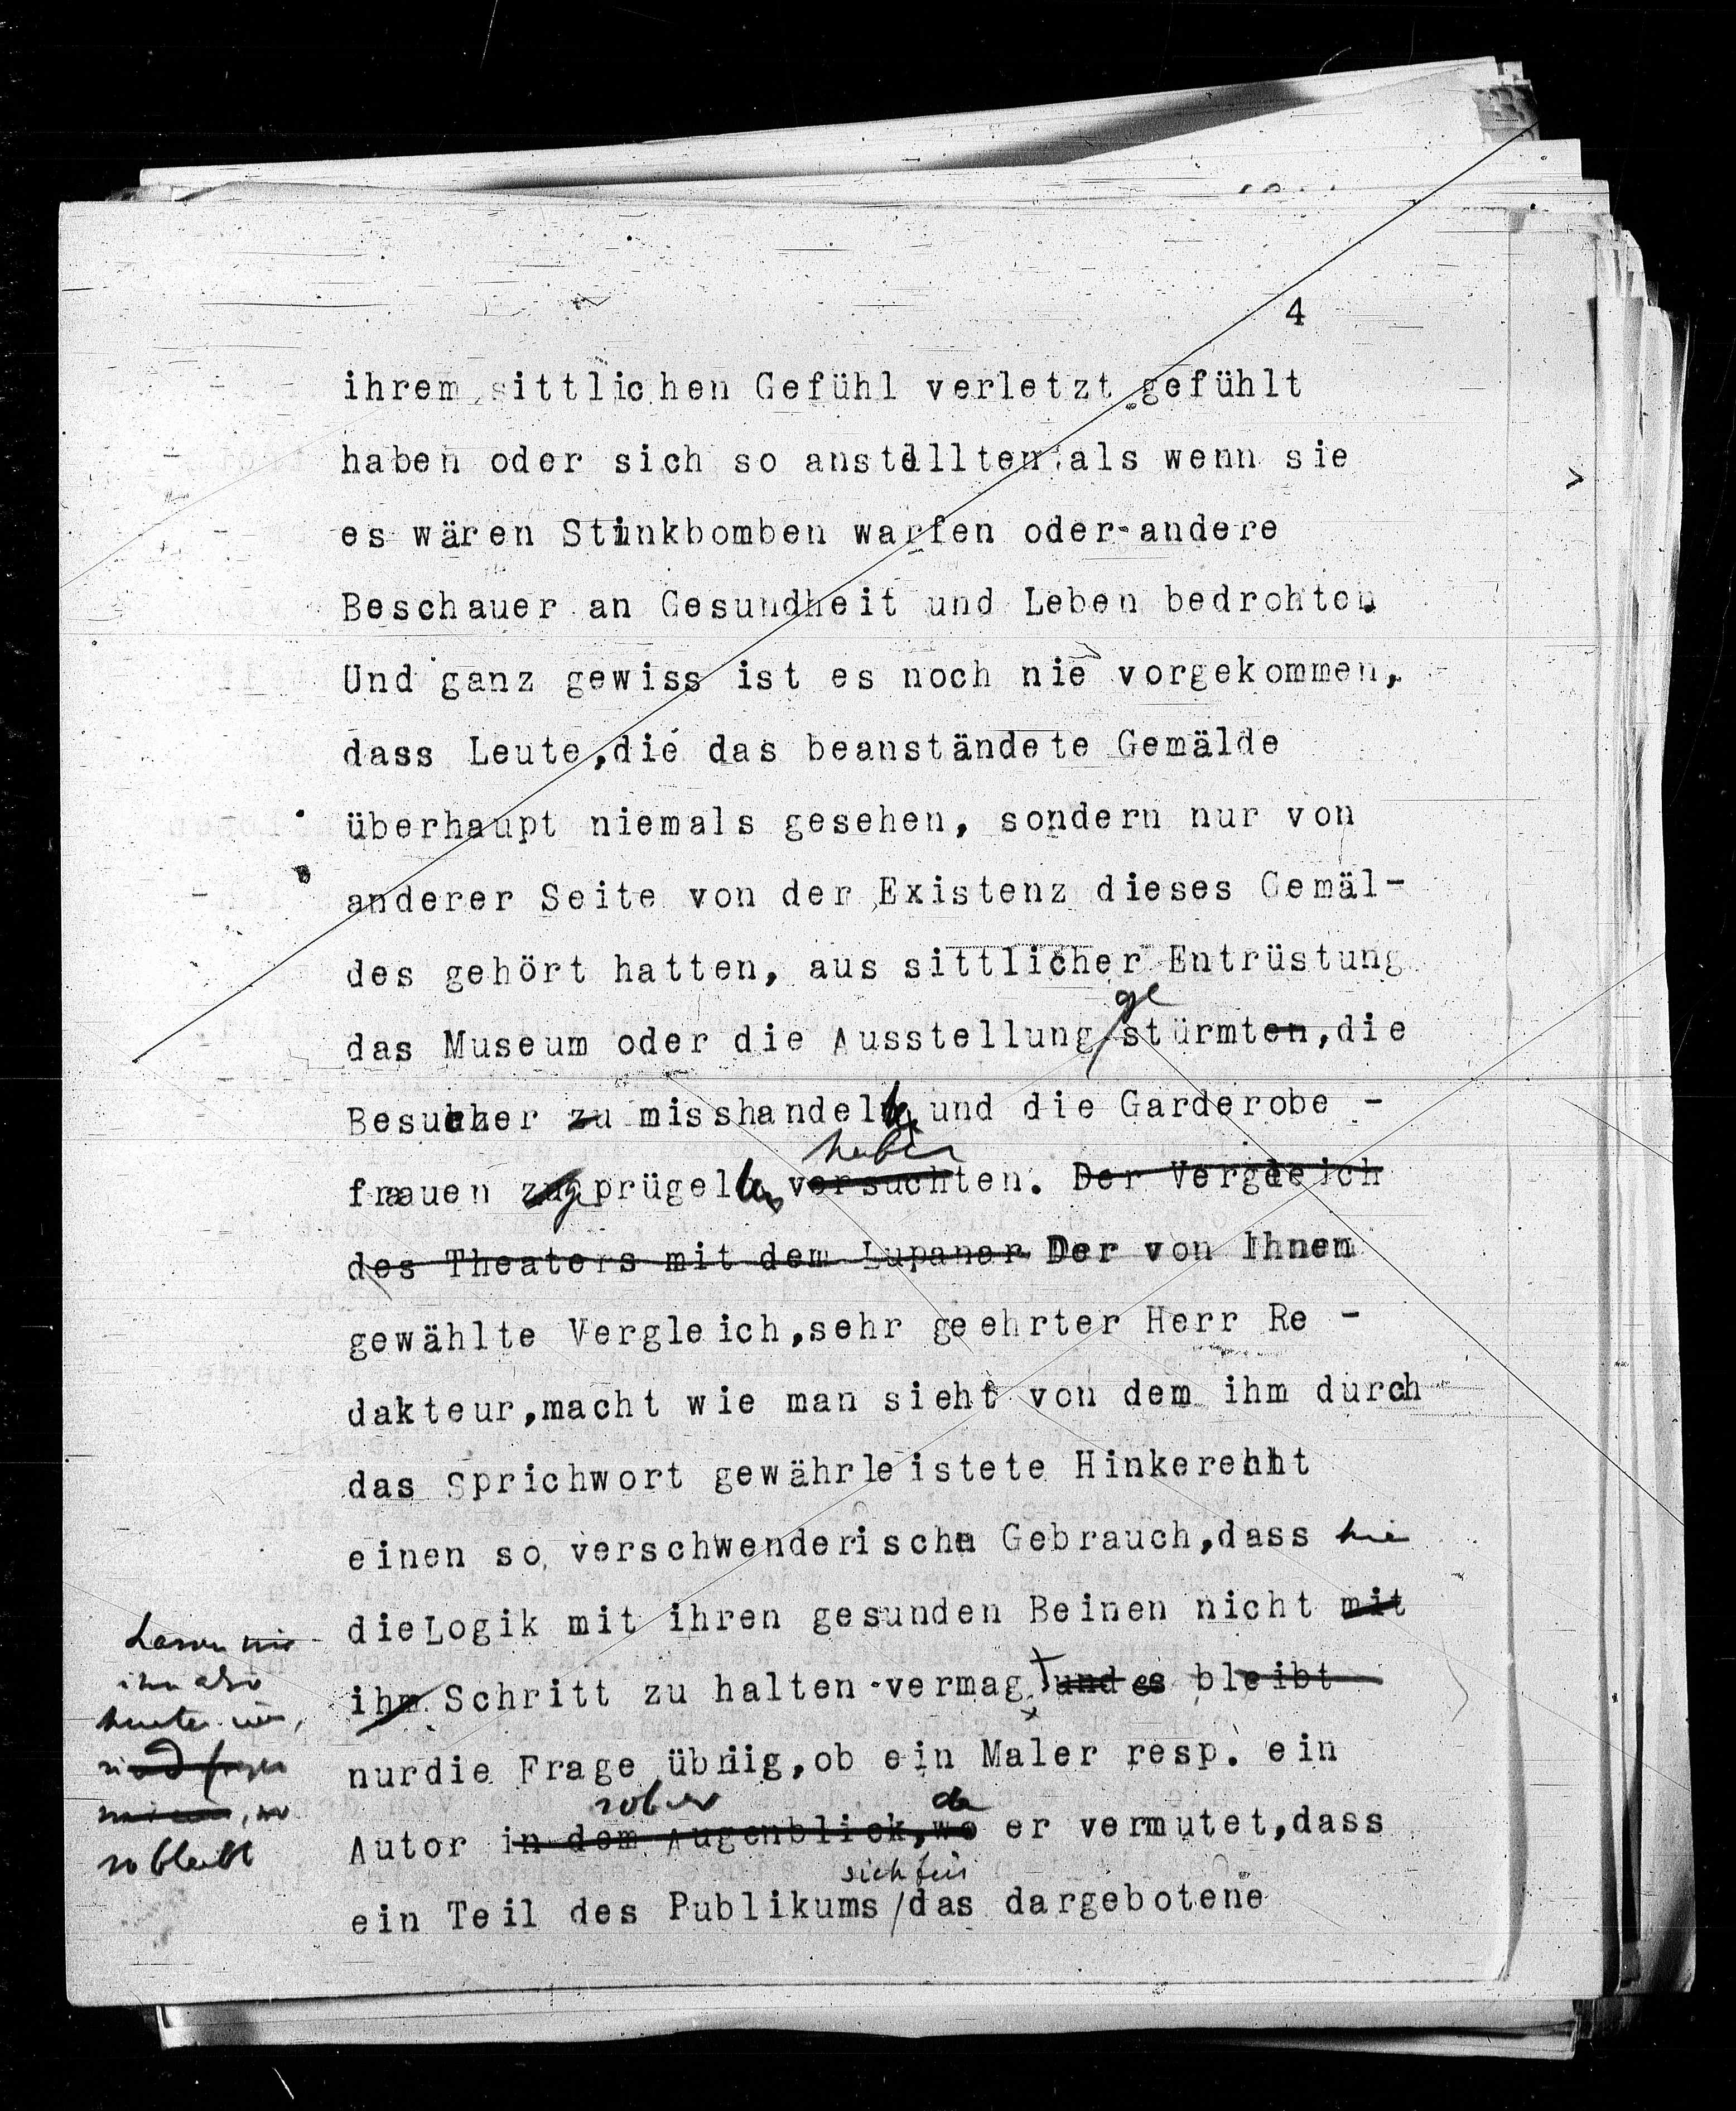 4
ihrem sittlichen Gefühl verletzt gefühlt
haben oder sich so anstellten als wenn sie
es wären Stinkbomben warfen oder andere
Beschauer an Gesundheit und Leben bedrohten
Und ganz gewiss ist es noch nie vorgekommen,
dass Leute,die das beanständete Gemälde
überhaupt niemals gesehen, sondern nur von
anderer Seite von der Existenz dieses Gemäl-
des gehört hatten, aus sittlicher Entrüstung
ge
das Museum oder die Ausstellung/stürmten,die
Besucher zu misshandelt und die Garderobe -
haben
frauen zu ge prügelt versuchten. Der Vergleich
des Theaters mit dem Lupanar Der von Ihnen
gewählte Vergleich,sehr geehrter Herr Re -
dakteur,macht wie man sieht von dem ihm durch
das Sprichwort gewährleistete Hinkerecht
einen so verschwenderischen Gebrauch,dass
dieLogik mit ihren gesunden Beinen nicht mit
ihm Schritt zu halten vermag und es bleibt
nurdie Frage übrig,ob ein Maler resp. ein
da
Autor in dem Augenblick,wo er vermutet,dass
sich für
ein Teil des Publikums/das dargebotene
Lassen wir
ihn also
so bleibt